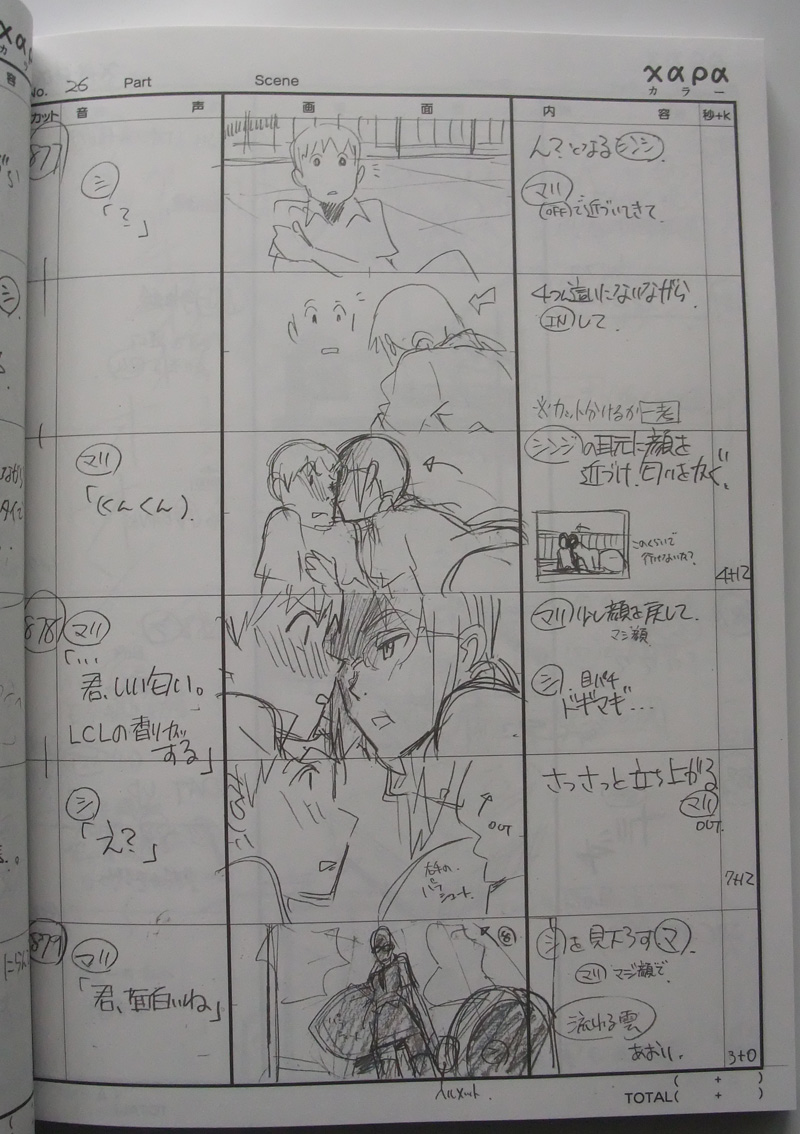 No. 26 Part Scene
χαρα
カラー
カット 音声 画面 内容 秒+k
877
シ
「?」
ん?となるシンジ
マリ
(OFF)で近づいてきて
4つん這いになりながら
INして
※カット分けるか一考
マリ
「(くんくん)」
シンジの耳元に顔を
近づけ、匂いをかぐ
このくらいで
4+12
878
マリ
「…
君、いい匂い。
LCLの香りが
する」
マリ 少し顔を戻して
マジ顔
シ 目パチ
ドギマギ…
シ
「え?」
さっさと立ち上がる
マリ
OUT
OUT
7+12
879
マリ
「君、面白いね」
シを見下ろすマ
マリ マジ顔で
流れる雲
あおり。
ヘルメット
3+0
( + )
TOTAL( + )